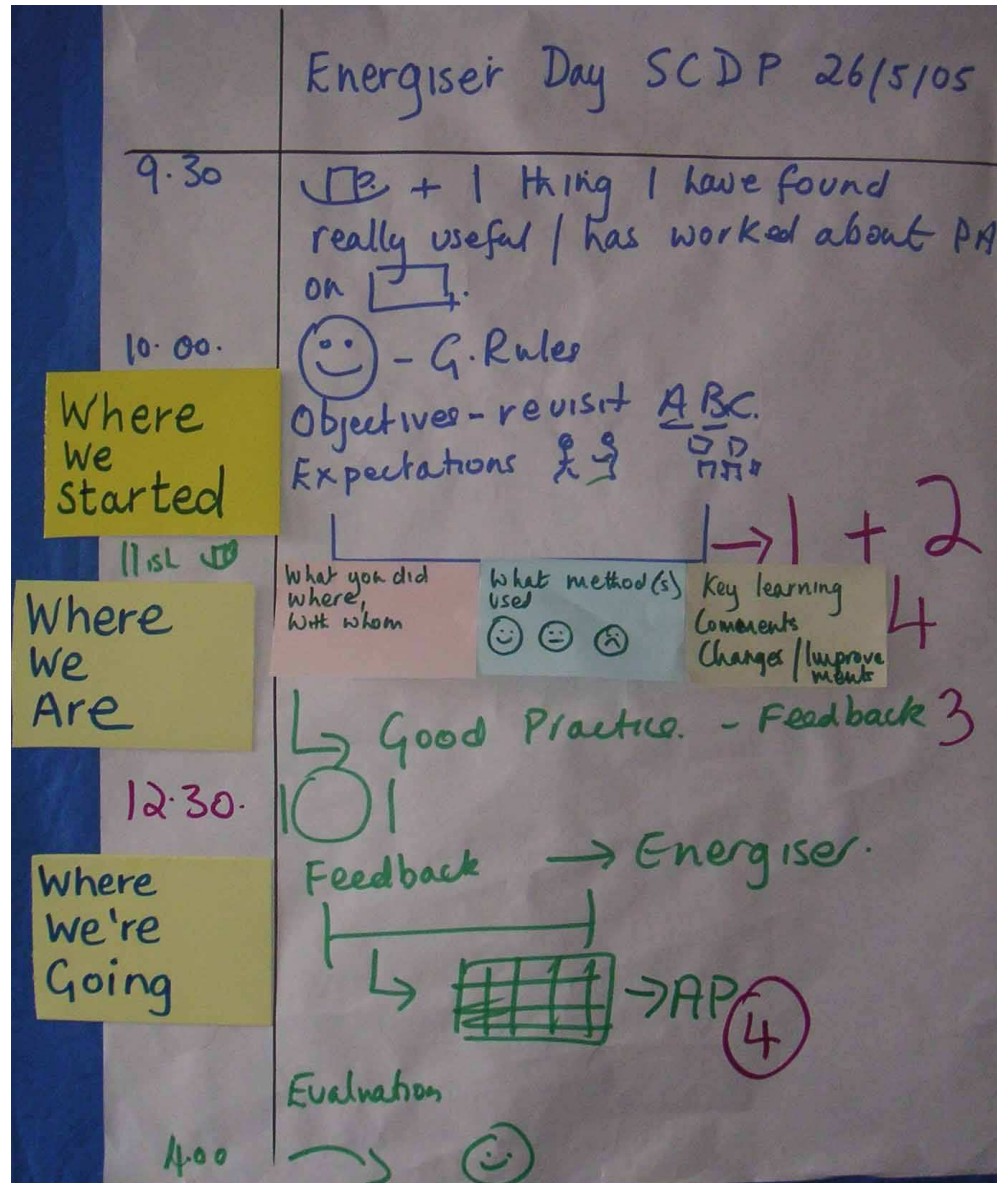 Energiser Day SCDP 26/5/05
9.30
+ 1 thing I have found
really useful / has worked about PA
on
10.00.
- G. Rules
Where
We
Started
Objectives - revisit ABC.
Expectations
→ 1 + 2
11ish
What you did
where,
with whom
What method(s)
used
Key learning
Comments
Changes / Improve
ments
4
Where
We
Are
Good Practice. - Feedback 3
12.30.
Feedback → Energiser.
Where
We're
Going
→ AP
4
Evaluation
4.00